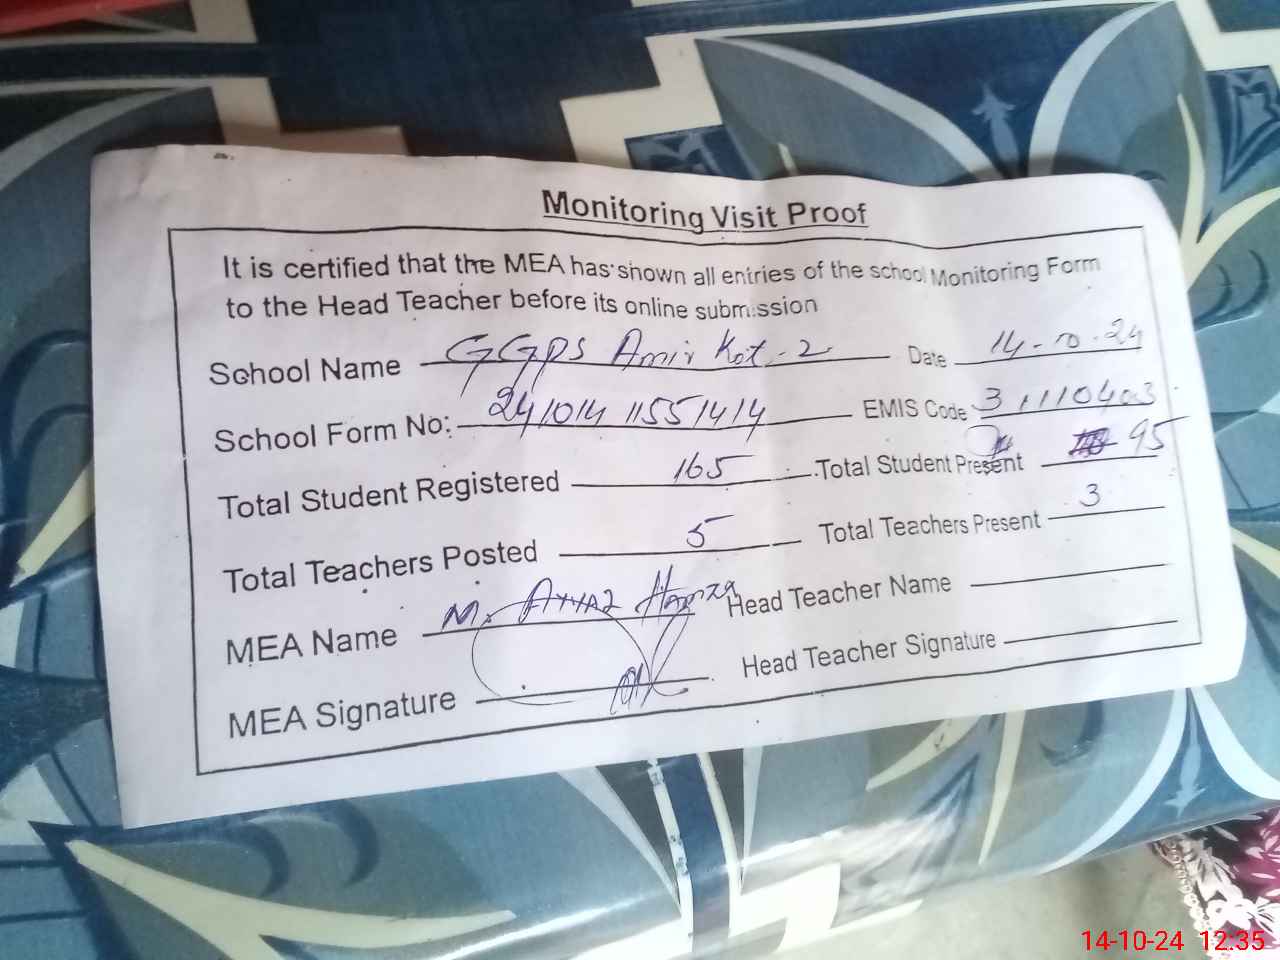 Monitoring Visit Proof
It is certified that the MEA has shown all entries of the school Monitoring Form
to the Head Teacher before its online submission
School Name GGPS Amir Kot-2 Date 14-10-24
School Form No: 241014 11551414 EMIS Code 31110403
Total Student Registered 165 Total Student Present 95
Total Teachers Posted 5 Total Teachers Present 3
MEA Name M. Ayyaz Hamza Head Teacher Name
MEA Signature Head Teacher Signature
14-10-24 12:35